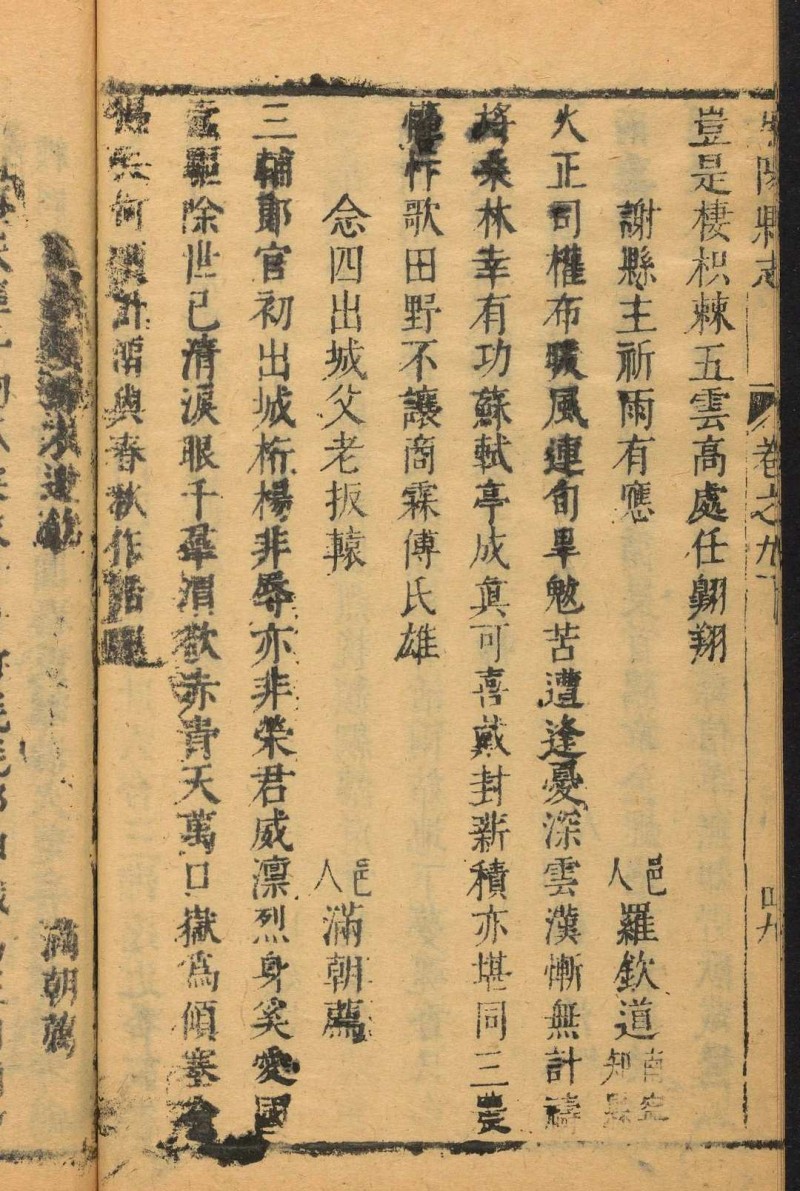 陽縣志
卷之九下
四九
豈是棲枳棘五雲高處任翱翔
謝縣主祈雨有應
邑人羅欽道南安知縣
火正司權布暖風連旬旱魃苦遭逢憂深雲漢慚無計禱
將桑林幸有功蘇軾亭成真可喜戴封薪積亦堪同三農
忭歌田野不讓商霖傅氏雄
念四出城父老扳轅
邑人滿朝薦
三輔郎官初出城桁楊非辱亦非榮君威凛烈身奚愛國
驅除世已清淚眼千羣渭欲赤青天萬口嶽為傾塞
何計留與春秋作話
滿朝薦